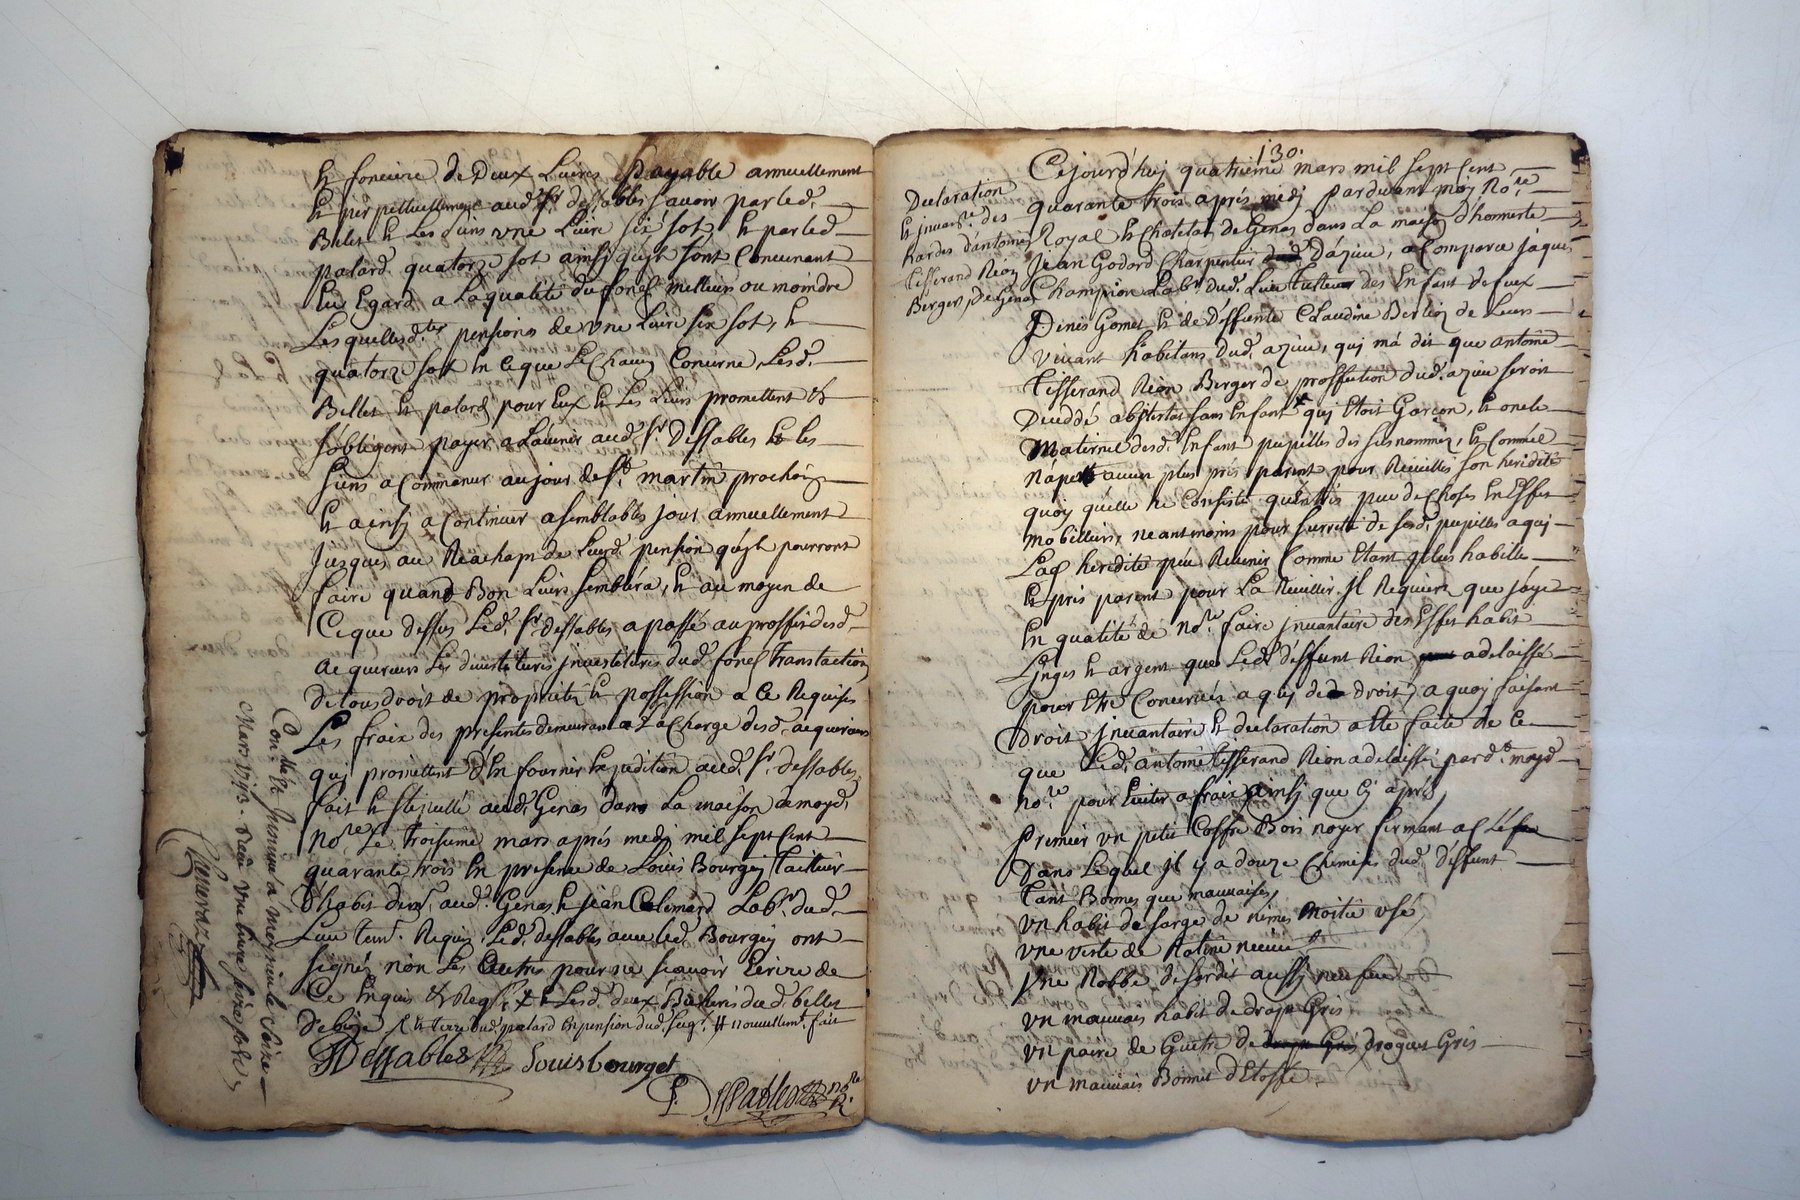 et fonciere de Deux Livres payable annuellement
et perpetuellement aud. Sr. dessables savoir par led.
Billet et Les siens vne Livre six sot, et par led
palard quatorze sot ainsy qu'ils sont Concernant
Eu Egard a La qualité du fond meilleur ou moindre
Les quelles d.tes pensions de vne Livre six sot, et
quatorze sot En ce que Le Chacun Concerne, Lesd.
Billet et palard pour Eux et Les Leurs promettent et
s'obligent payer a L'avenir aud. Sr. Dessables et les
siens a Commencer au jour de St. martin prochain
et ainsy a Continuer a semblables jour annuellement
jusques au Reachapt de Leurd. pension qu'ils pourront
faire quand Bon Leurs semblera, et au moyen de
Ce que dessus Led. Sr. dessables a passé au proffit desd.
acquereurs Les divestitures jnvestitures dud. fond translation
De tous droit de proprieté et possession a Ce Requises
Les fraix des presentes demeurant a La Charge desd. acquereurs
quj promettent d'En fournir Expedition aud. Sr. dessables,
fait et stipullé aud. Genas dans La maison de moyd.
no.re Le troisieme mars aprés medj mil sept Cent
quarante trois En presence de Louis Bourgey tailleur
d'habit dem.t aud. Genas et jean Colimard Lab.r dud.
Lieu tem.t Requis Led. dessables avec led. Bourgey ont
signés non Les Autres pour ne sçavoir Ecrire de
Ce Enquis et Req.s
Dessables Louis bourget
P. Dessables no.re
Con.lle Et
Mars 1743. Reçu vne livre
130.
Declaration
et jnvan.re des
hardes d'antoine
tisserand Rion
Berger, De Genas
Cejourd'huj quatrieme mars mil sept Cent
quarante trois aprés midj pardevant moy No.re
Royal et Chatelain de Genas dans La maison d'honneste
Jean Godard Charpentier D'azieu, a Comparu jaques
Champion Lab.r dud. Lieu tutteur des Enfant de feux
Denis Gomet et de Deffunte Claudine Berlioz de Leurs
vivant habitans dud. azieu, quj m'a dit que antoine
tisserand Rion Berger de proffection dud. azieu seroit
Deceddé abintestat sans Enfant quj Etoit Garçon, et oncle
Maternel desd. Enfant pupilles des susnommez, et Comme il
n'a aucun plus prés parent pour Recueillir son heridité
quoy qu'elle ne Consiste qu'en trés peu de Choses En Effet
mobilliers, neantmoins pour surreté de sesd. pupilles a quj
Lad. heredité peu Revenir Comme Etant plus habille
et prés parent pour La Recueillir Il Requiert que j'aye
En qualité de no.re faire jnvantaire des Effet habit
Linges et argent que Led. deffunt Rion a delaissé
pour Etre Conservés a quj de droit, a quoy faisant
Droit jnvantaire et declaration a Eté faite de Ce
que Led. antoine tisserand Rion a delaissé pard.t moyd.
no.re pour Eviter a fraix ainsj que Cj aprés
Premier vn petit Coffre Bois noyer fermant a Clef
Dans Lequel jl y a douze Chemises dud. deffunt
tant Bonnes que mauvaises,
vn habit de sarge de nimes Moitié vsé,
vne veste de Ratine neuve
vne Robbe de Cordis aussy neufve
vn mauvais habit de drap Gris
vn paire de Guetre de droguet Gris
vn mauvais Bonnet d'Etoffe